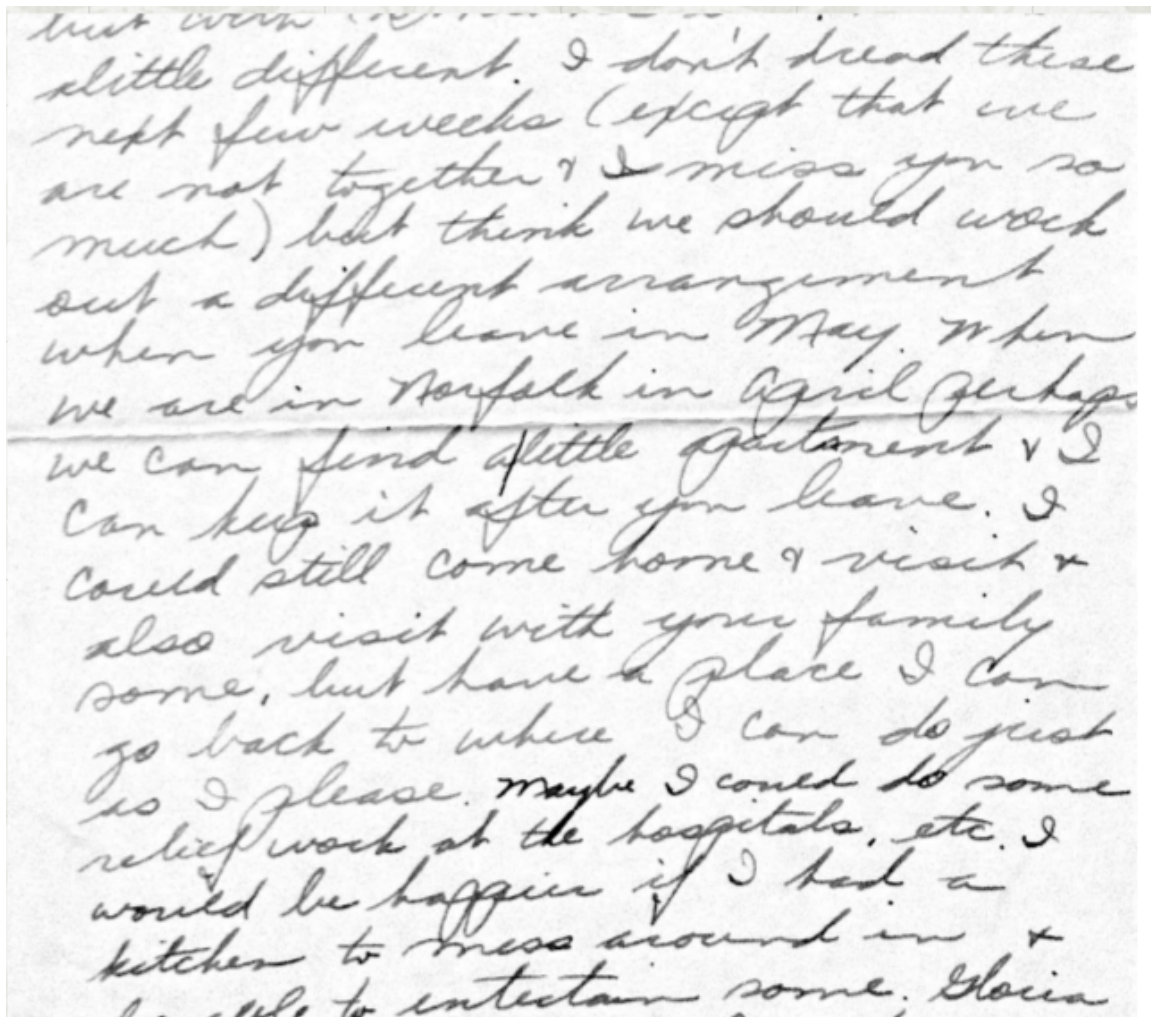 but with
alittle different. I don't dread these
next few weeks (except that we
are not together & I miss you so
much) but think we should work
out a different arrangement
when you leave in May. When
we are in Norfolk in April perhaps
we can find a/little apartment & I
can keep it after you leave. I
could still come home & visit &
also visit with your family
some, but have a place I can
go back to where I can do just
as I please. Maybe I could do some
relief work at the hospitals, etc. I
would be happier if I had a
kitchen to mess around in &
be able to entertain some. Gloria